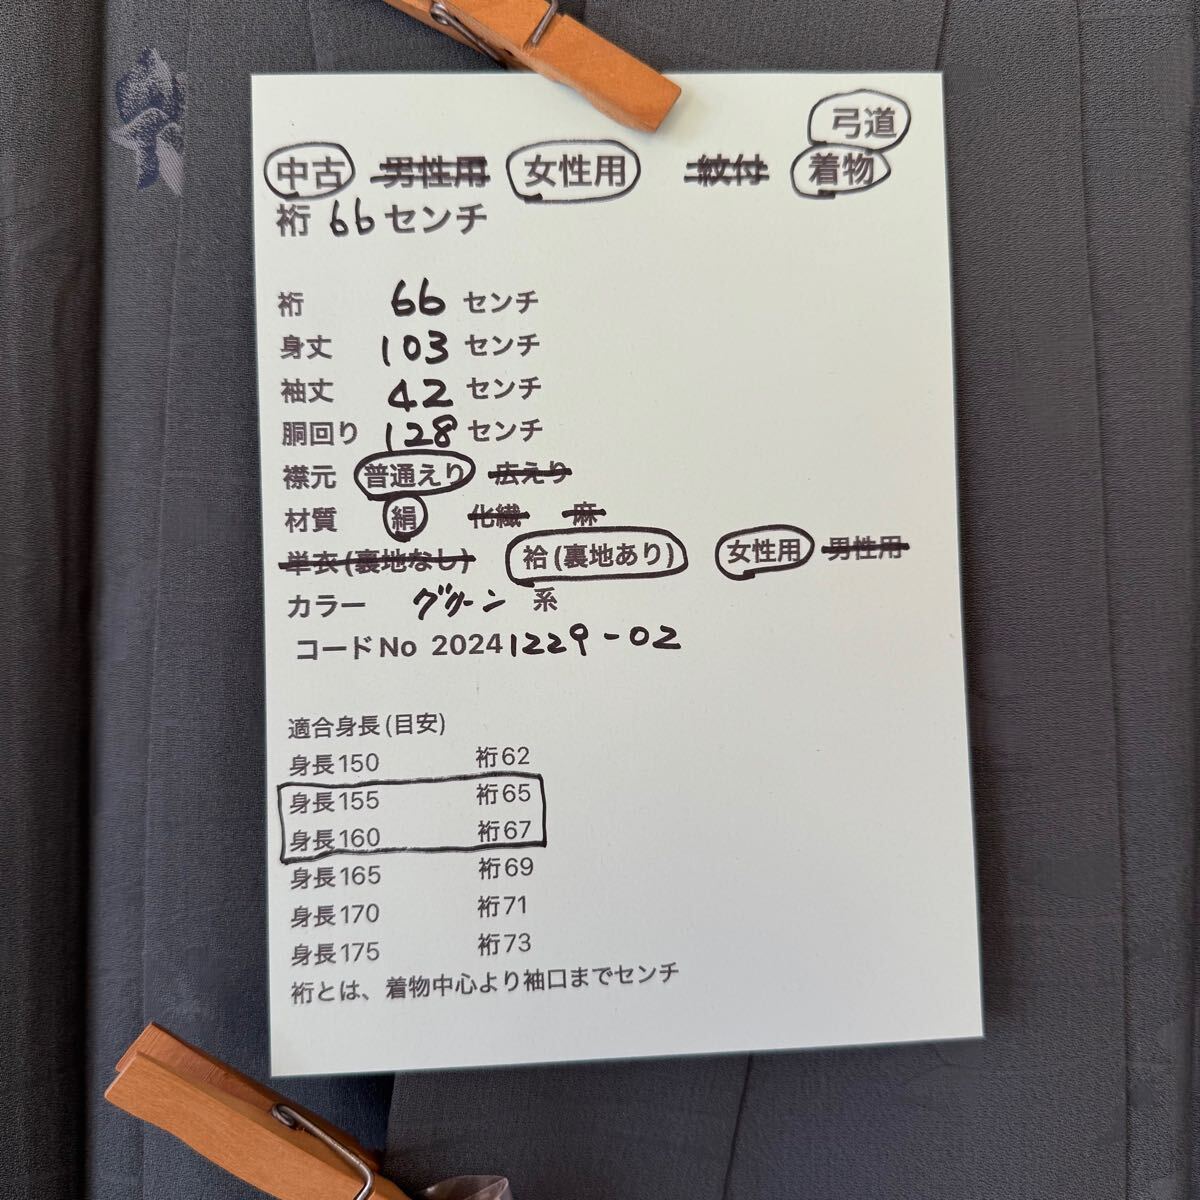 弓道
中古 男性用 女性用 一紋付 着物
裄 66 センチ
裄 66 センチ
身丈 103 センチ
袖丈 42 センチ
胴回り 128 センチ
襟元 普通えり 広えり
材質 絹 化繊 麻
単衣(裏地なし) 袷(裏地あり) 女性用 男性用
カラー グリーン 系
コードNo 20241229-02
適合身長(目安)
身長150 裄62
身長155 裄65
身長160 裄67
身長165 裄69
身長170 裄71
身長175 裄73
裄とは、着物中心より袖口までセンチ